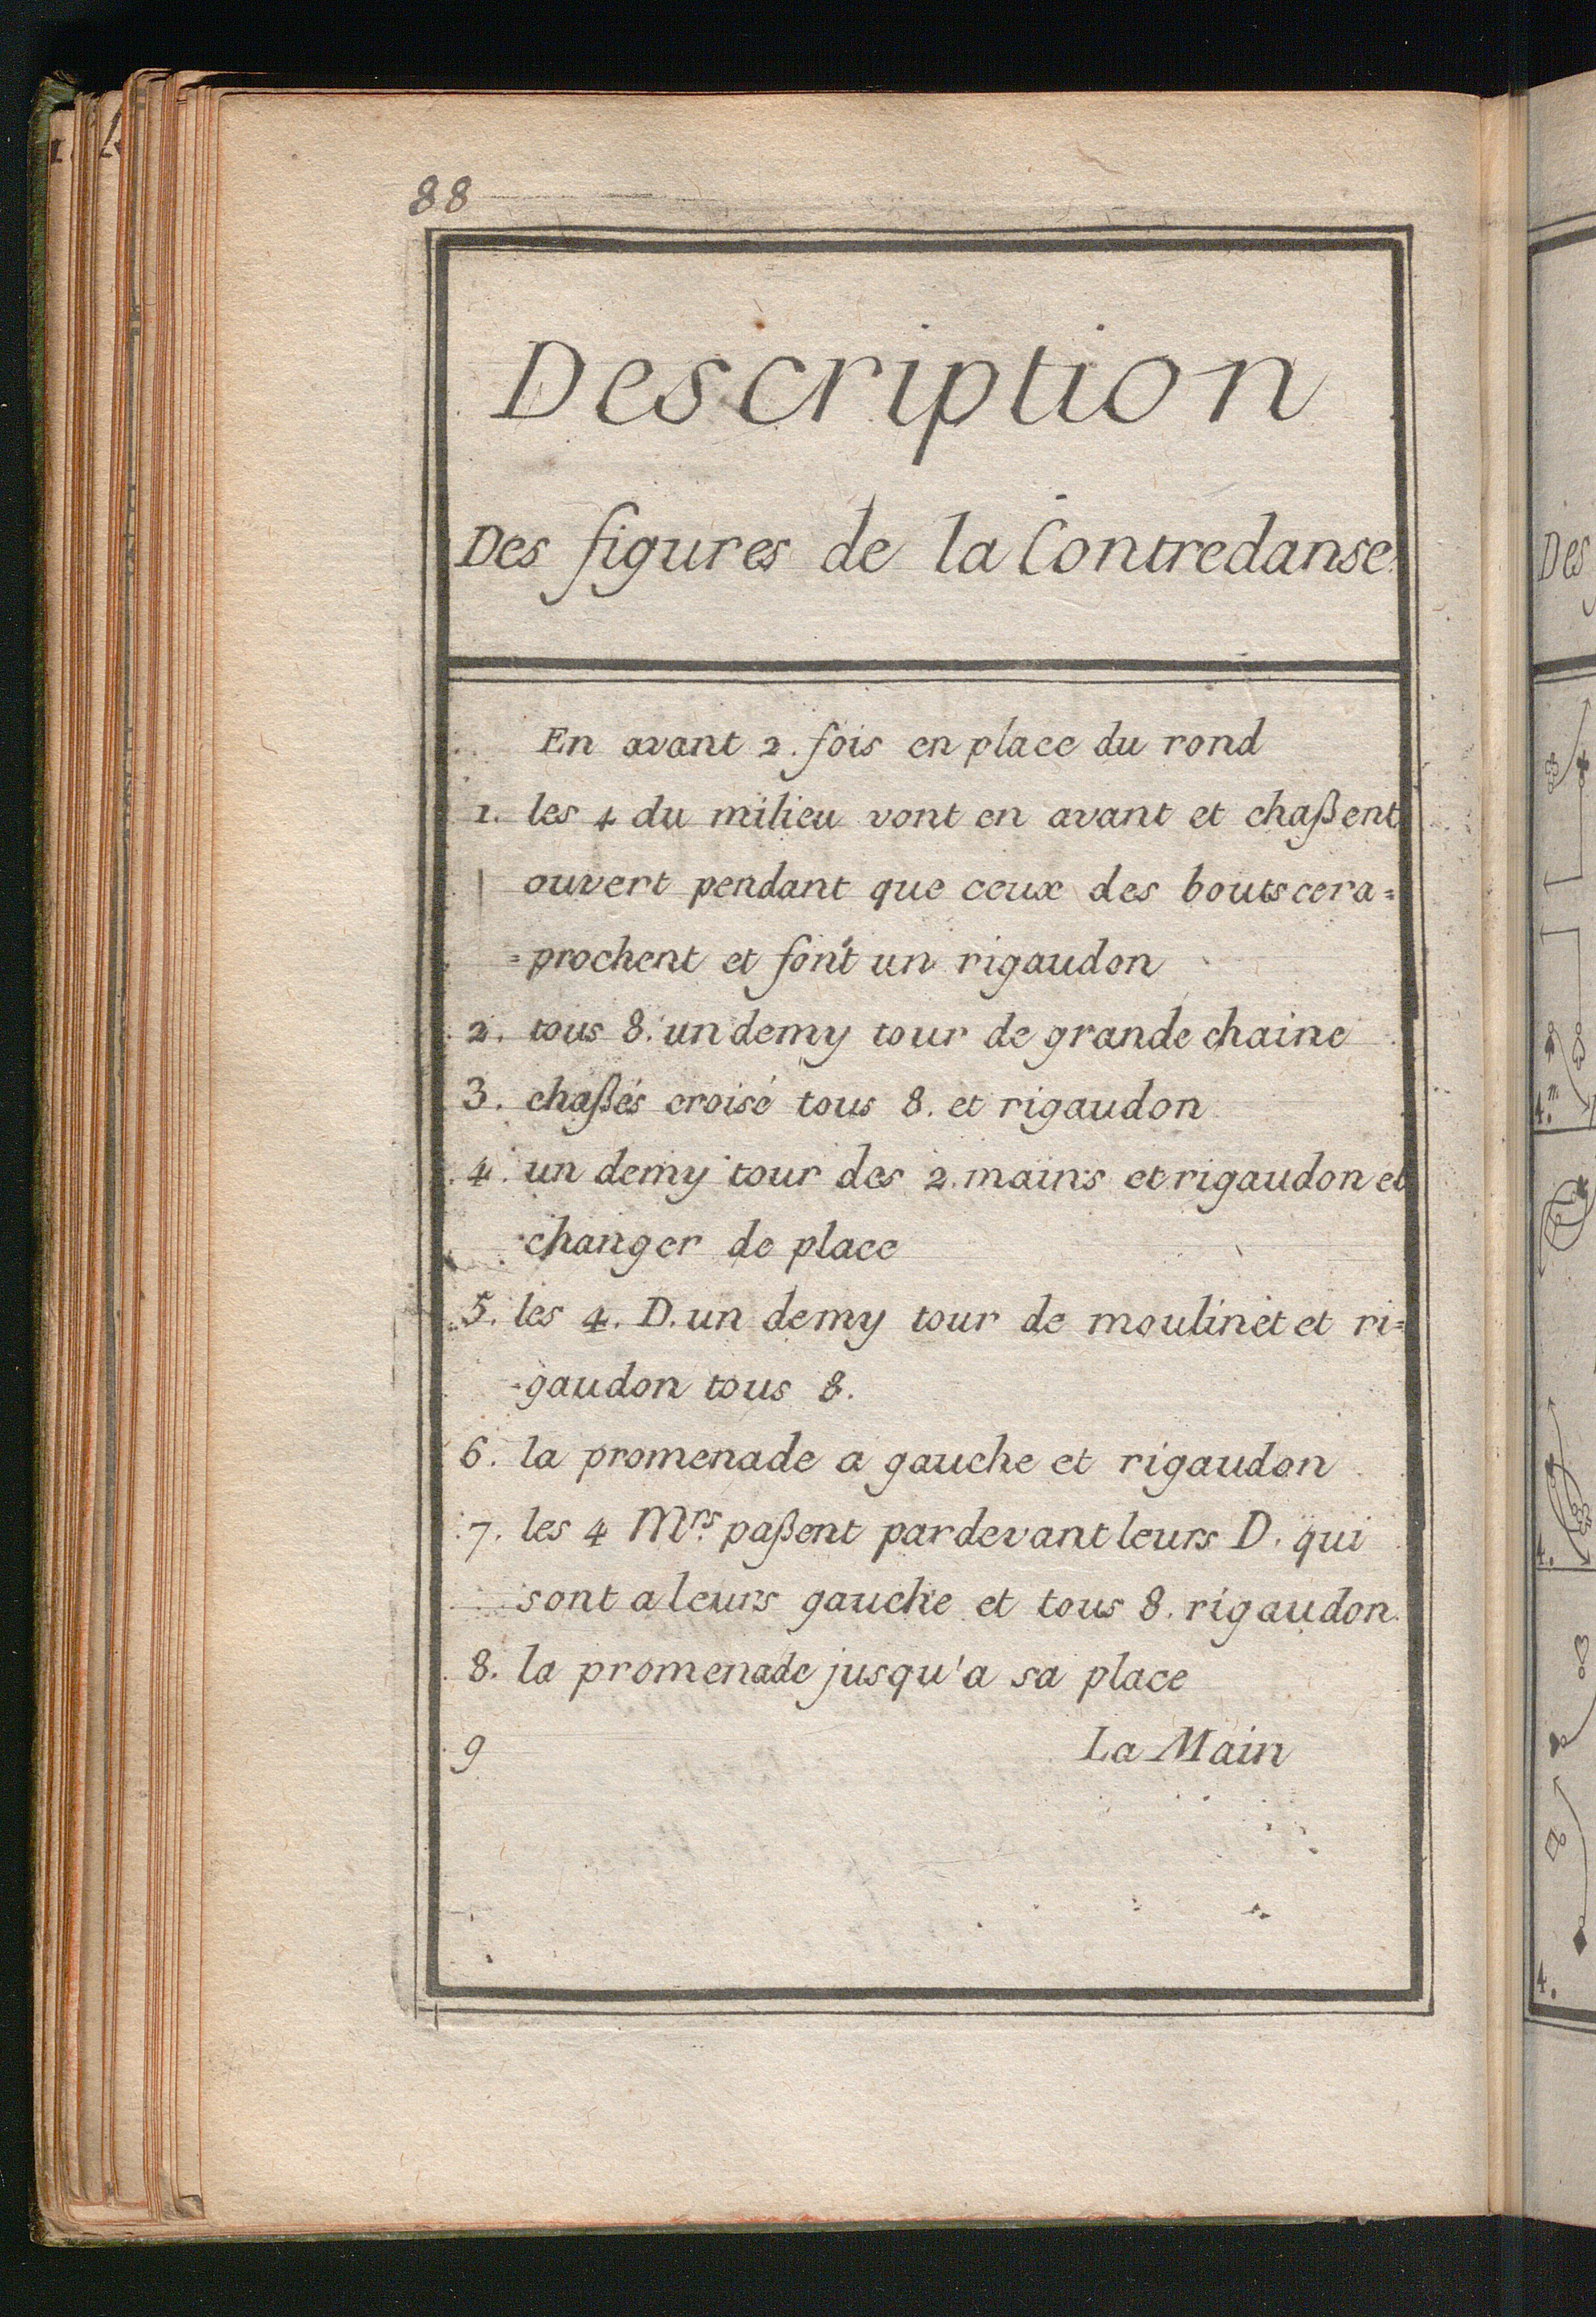 88
Description
Des figures de la Contredanse
En avant 2. fois en place du rond
1. les 4 du milieu vont en avant et chaßent
ouvert pendant que ceux des bouts cera=
=prochent et font un rigaudon
2. tous 8. un demy tour de grande chaine
3. chaßés croisé tous 8. et rigaudon
4. un demy tour des 2. mains et rigaudon et
changer de place
5. les 4. D. un demy tour de moulinet et ri=
-gaudon tous 8.
6. la promenade a gauche et rigaudon
7. les 4 Mrs. paßent pardevant leurs D. qui
sont a leurs gauche et tous 8. rigaudon.
8. la promenade jusqu'a sa place
9 La Main
Des
4.
4.
4.